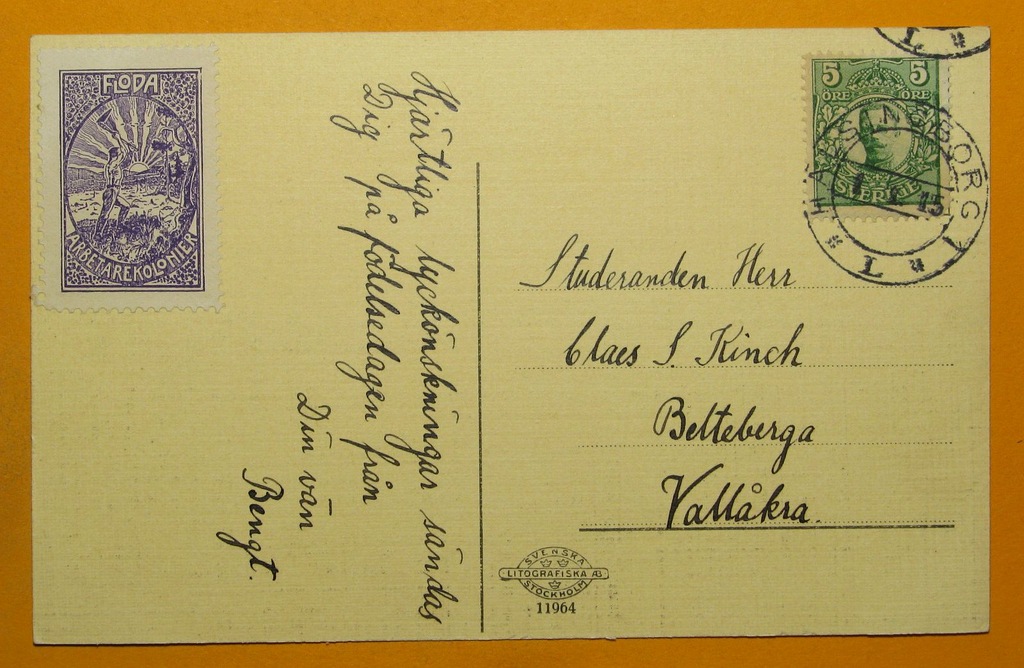 FLODA
ARBETAREKOLONIER
Hjärtliga lyckönskningar sändas
Dig på födelsedagen från
Din vän
Bengt.
5 5
ÖRE ÖRE
SVERIGE
HÄLSINGBORG 1
15
L
L
Studeranden Herr
Claes S. Kinch
Belteberga
Vallåkra.
SVENSKA
LITOGRAFISKA AB.
STOCKHOLM
11964